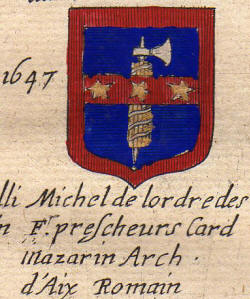 1647
lli Michel de lordre des
n Fr. prescheurs Card
mazarin Arch.
d'Aix Romain